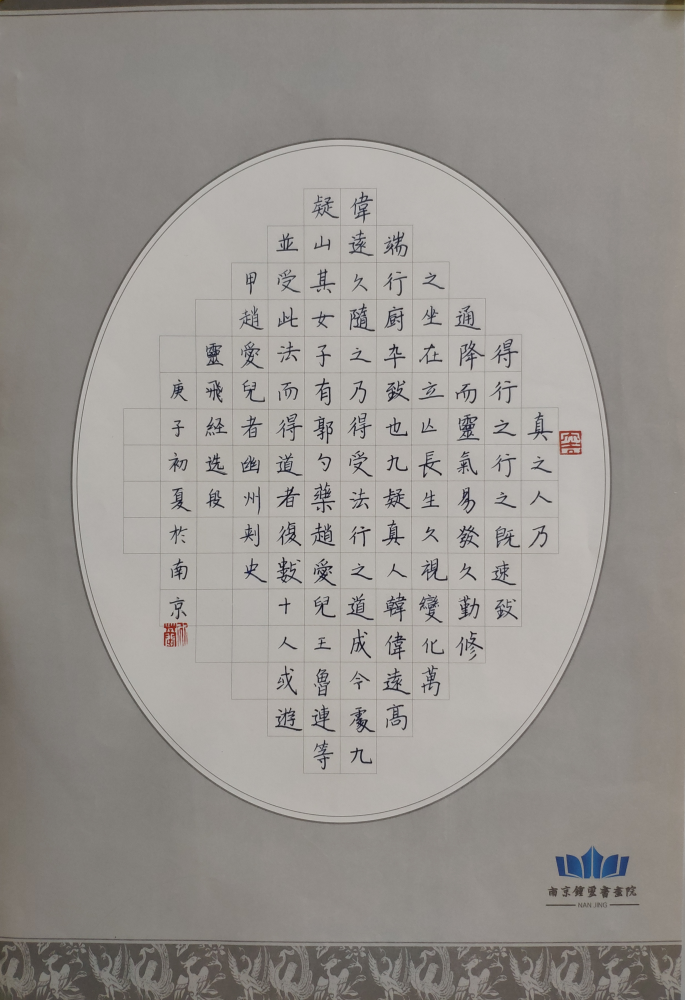 真之人乃
得行之行之既速致
通降而靈氣易發久勤修
之坐在立亾長生久視變化萬
端行厨卒致也九疑真人韓偉遠高
偉遠久隨之乃得受法行之道成今處九
疑山其女子有郭勺藥趙愛兒王魯連等
並受此法而得道者復數十人或遊
甲趙愛兒者幽州刾史
靈飛經选段
庚子初夏於南京
南京書畫院
NAN JING